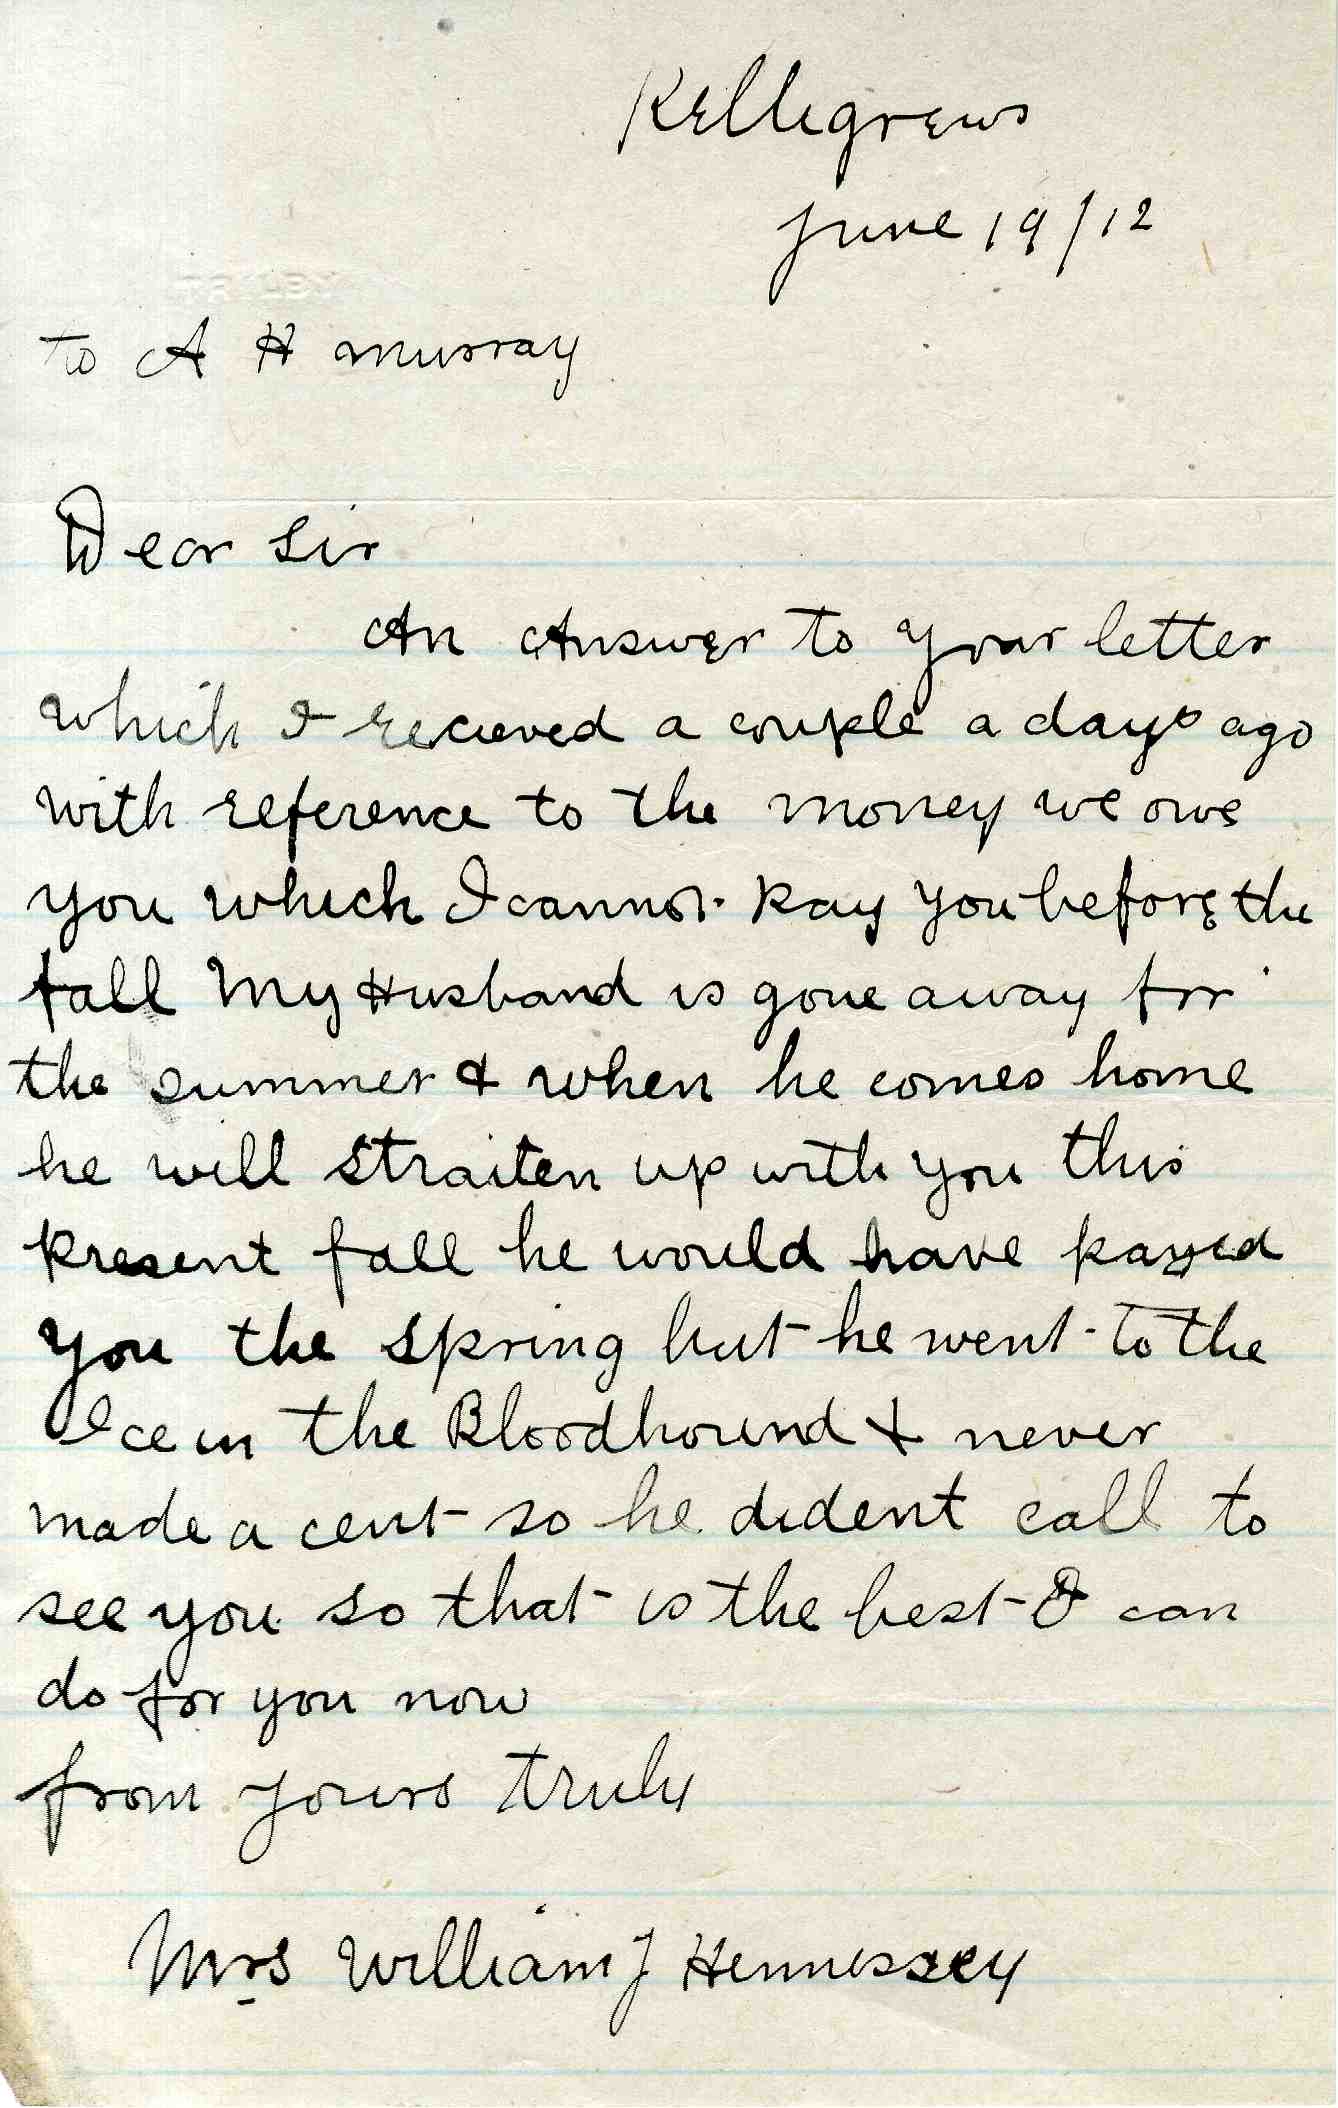 Kelligrews
June 19/12
to A H Murray
Dear Sir
An Answer to your letter
which I recieved a couple a days ago
with reference to the money we owe
you which I cannot pay you before the
fall My Husband is gone away for
the summer & when he comes home
he will straiten up with you this
present fall he would have payed
you the spring but he went to the
Ice in the Bloodhound & never
made a cent so he dident call to
see you so that is the best I can
do for you now
from yours truly
Mrs William J Hennessey